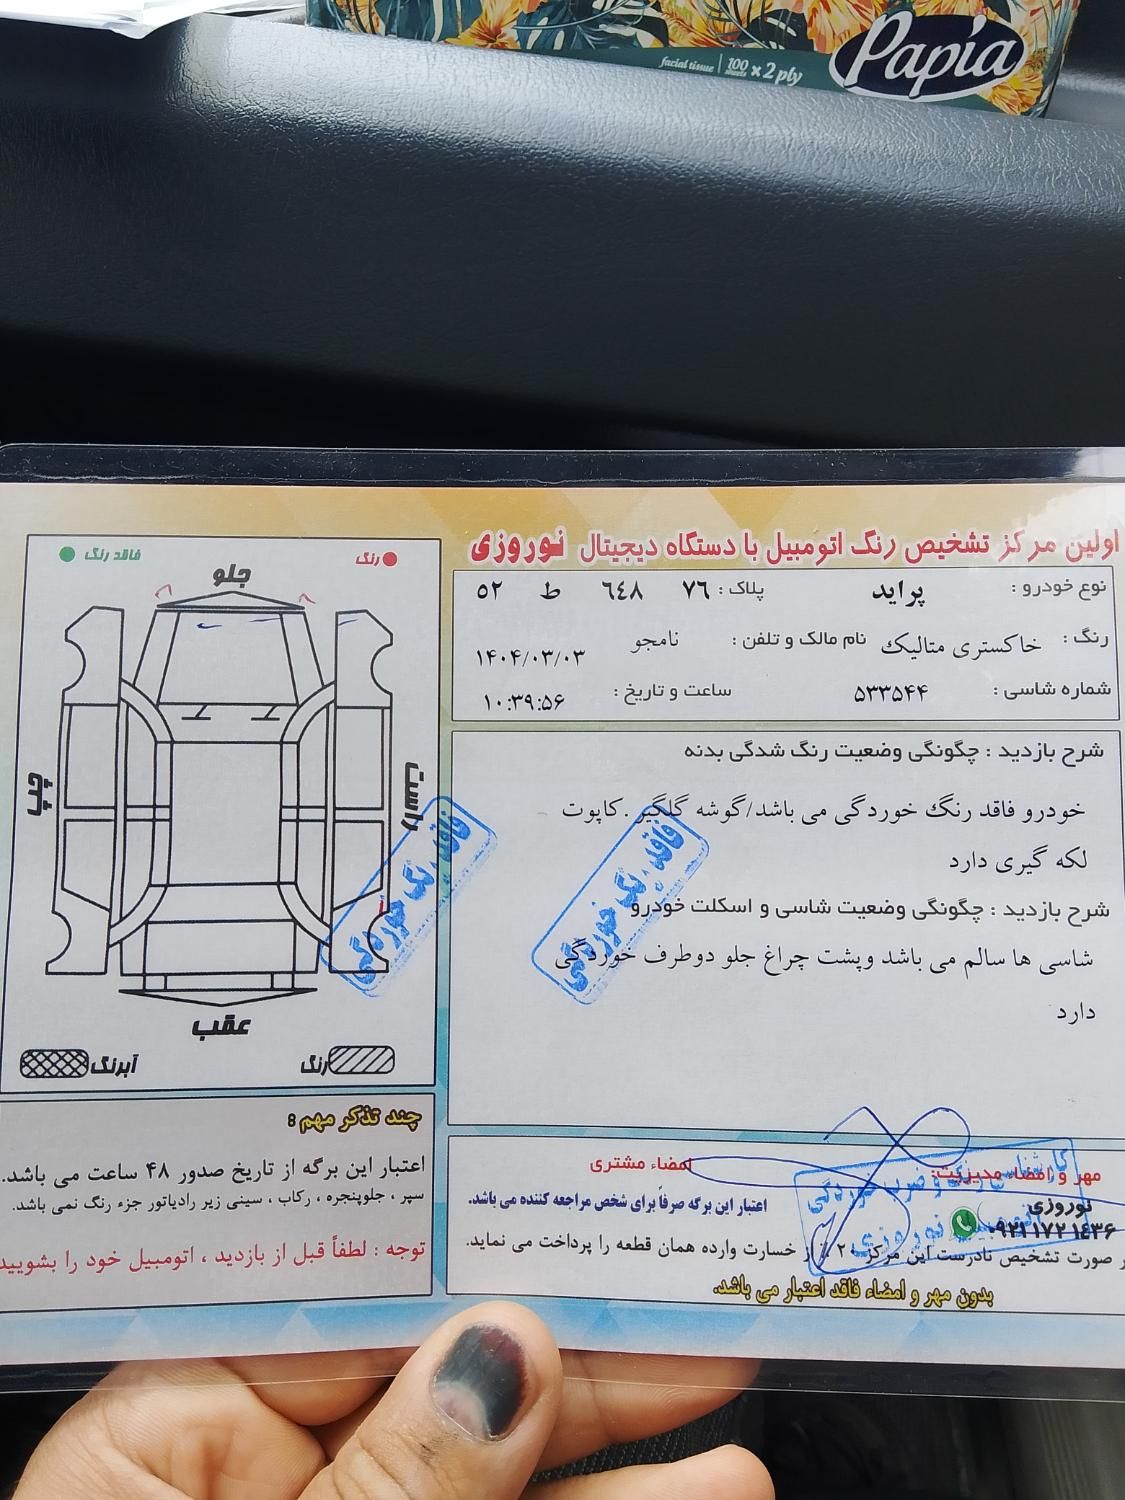 Papia
facial tissue | 100 sheets x 2 ply
اولین مرکز تشخیص رنگ اتومبیل با دستگاه دیجیتال نوروزی
نوع خودرو : پراید پلاک : ۷۶ ۶۴۸ ط ۵۲
رنگ : خاکستری متالیک نام مالک و تلفن : نامجو
۱۴۰۴/۰۳/۰۳
شماره شاسی : ۵۳۳۵۴۴ ساعت و تاریخ : ۱۰:۳۹:۵۶
شرح بازدید : چگونگی وضعیت رنگ شدگی بدنه
خودرو فاقد رنگ خوردگی می باشد/گوشه گلگیر .کاپوت
لکه گیری دارد
شرح بازدید : چگونگی وضعیت شاسی و اسکلت خودرو
شاسی ها سالم می باشد وپشت چراغ جلو دوطرف خوردگی
دارد
فاقد رنگ خوردگی
رنگ
فاقد رنگ
جلو
راست
چپ
فاقد رنگ خوردگی
عقب
رنگ
آبرنگ
چند تذکر مهم :
اعتبار این برگه از تاریخ صدور ۴۸ ساعت می باشد.
سپر ، جلوپنجره ، رکاب ، سینی زیر رادیاتور جزء رنگ نمی باشد.
توجه : لطفاً قبل از بازدید ، اتومبیل خود را بشویید
مهر و امضاء مدیریت: امضاء مشتری
نوروزی
۰۹۲۱۱۷۲۱۴۳۶
کارشناسی رنگ و ضرب خوردگی
نوروزی
اعتبار این برگه صرفاً برای شخص مراجعه کننده می باشد.
در صورت تشخیص نادرست این مرکز ۲۰٪ از خسارت وارده همان قطعه را پرداخت می نماید.
بدون مهر و امضاء فاقد اعتبار می باشد.